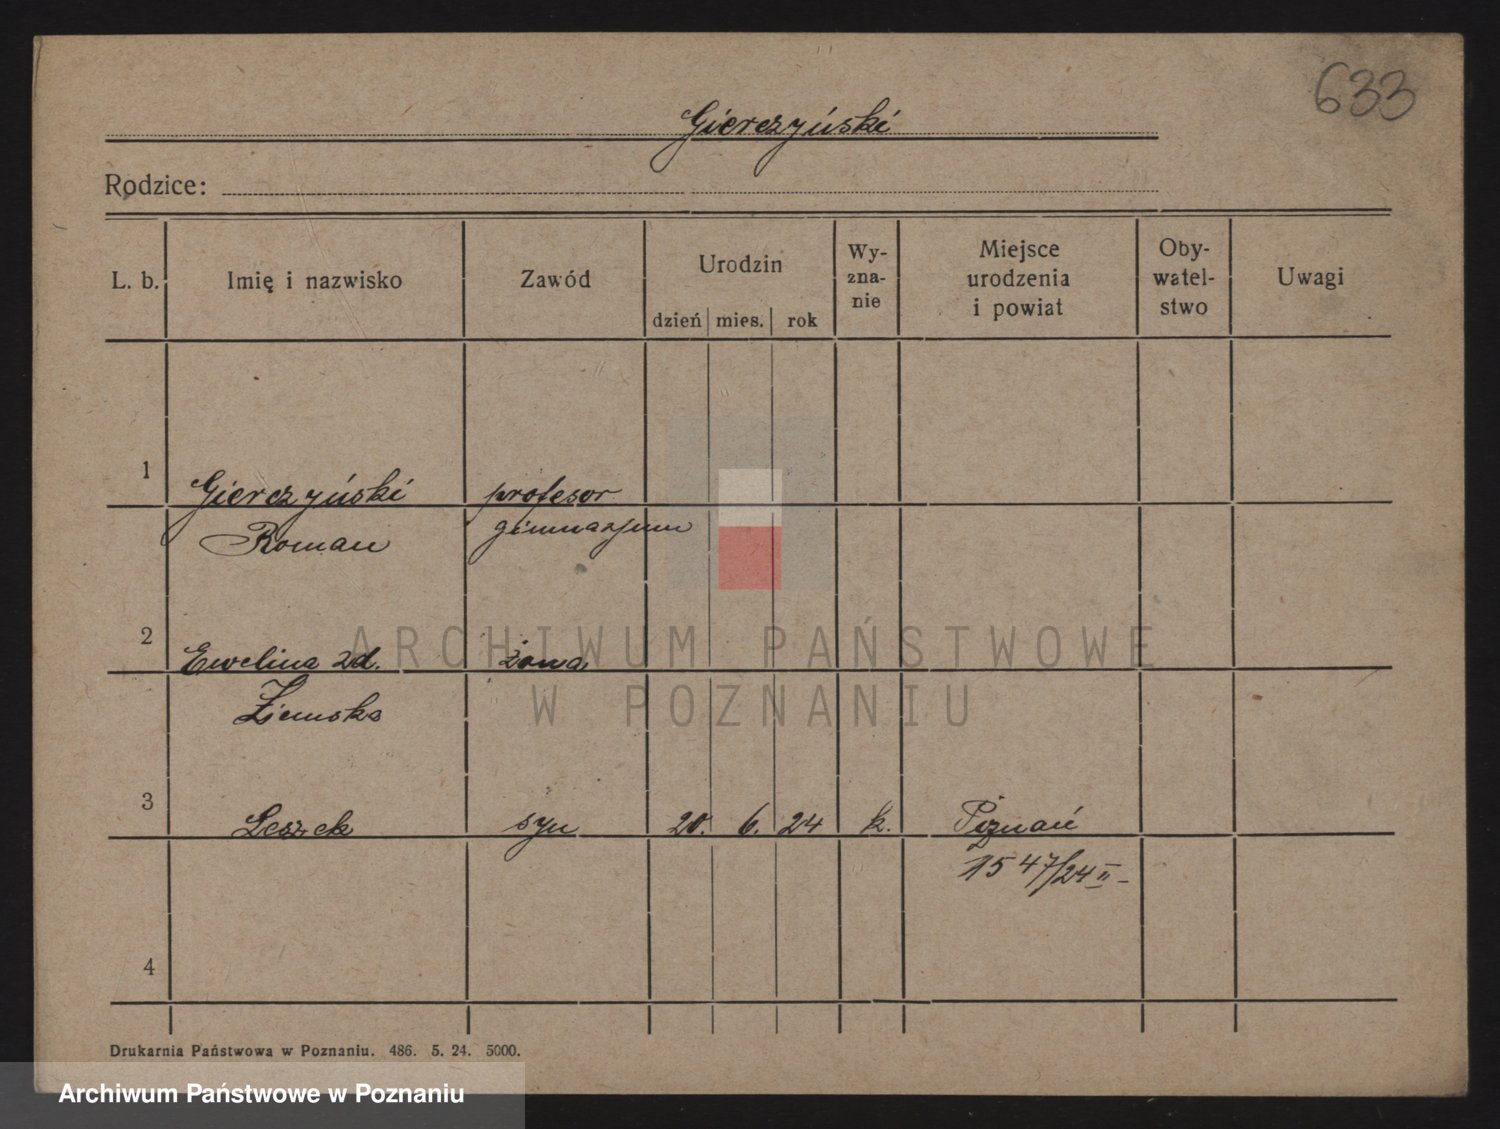 633
Gierczyński
Rodzice:
L. b. Imię i nazwisko Zawód Urodzin dzień mies. rok Wy-zna-nie Miejsce urodzenia i powiat Oby-watel-stwo Uwagi
1 Gierczyński profesor
Roman gimnazjum
2 Ewelina zd. żona
Ziemska
3 Leszek syn 20. 6. 24 k. Poznań
1547/24 II
4
Drukarnia Państwowa w Poznaniu. 486. 5. 24. 5000.
ARCHIWUM PAŃSTWOWE
W POZNANIU
Archiwum Państwowe w Poznaniu